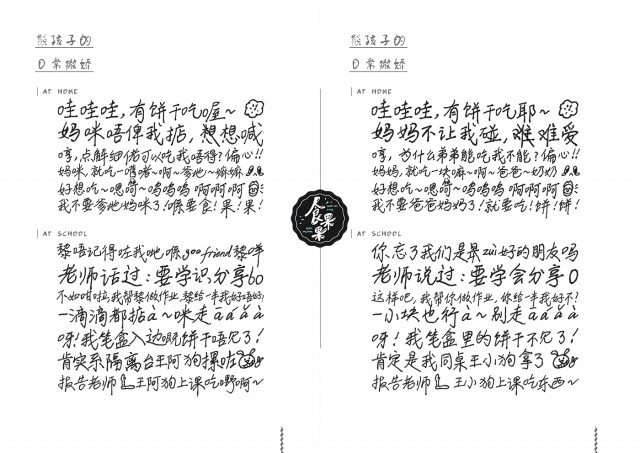 熊孩子的
日常撒娇
AT HOME
哇哇哇,有饼干吃喔~
妈咪唔俾我掂,想想喊
哼,点解细佬可以吃我唔得?偏心!!
妈咪,就吃一嚿啫~啊~爹哋~嫲嫲
好想吃~嗯哼~呜呜呜 啊啊啊
我不要爹哋妈咪了!喺要食!果!果!
AT SCHOOL
黎唔记得咗我哋喺goo friend黎咩
老师话过:要学识分享bo
不如咁啦,我帮黎做作业,黎给一半我好唔好
一滴滴都掂à~咪走āáǎà
呀!我笔盒入边嘅饼干唔见了!
肯实系隔离台王阿狗攞咗
报告老师 王阿狗上课吃嘢啊~
食果果
熊孩子的
日常撒娇
AT HOME
哇哇哇,有饼干吃耶~
妈妈不让我碰,难难受
哼,为什么弟弟能吃我不能?偏心!!
妈妈,就吃一块嘛~啊~爸爸~奶奶
好想吃~嗯哼~呜呜呜 啊啊啊
我不要爸爸妈妈了!就要吃!饼!饼!
AT SCHOOL
你忘了我们是最zuì好的朋友吗
老师说过:要学会分享O
这样吧,我帮你做作业,你给一半我好不!
一小块也行à~别走āáǎà
呀!我笔盒里的饼干不见了!
肯定是我同桌王小狗拿了
报告老师 王小狗上课吃东西~